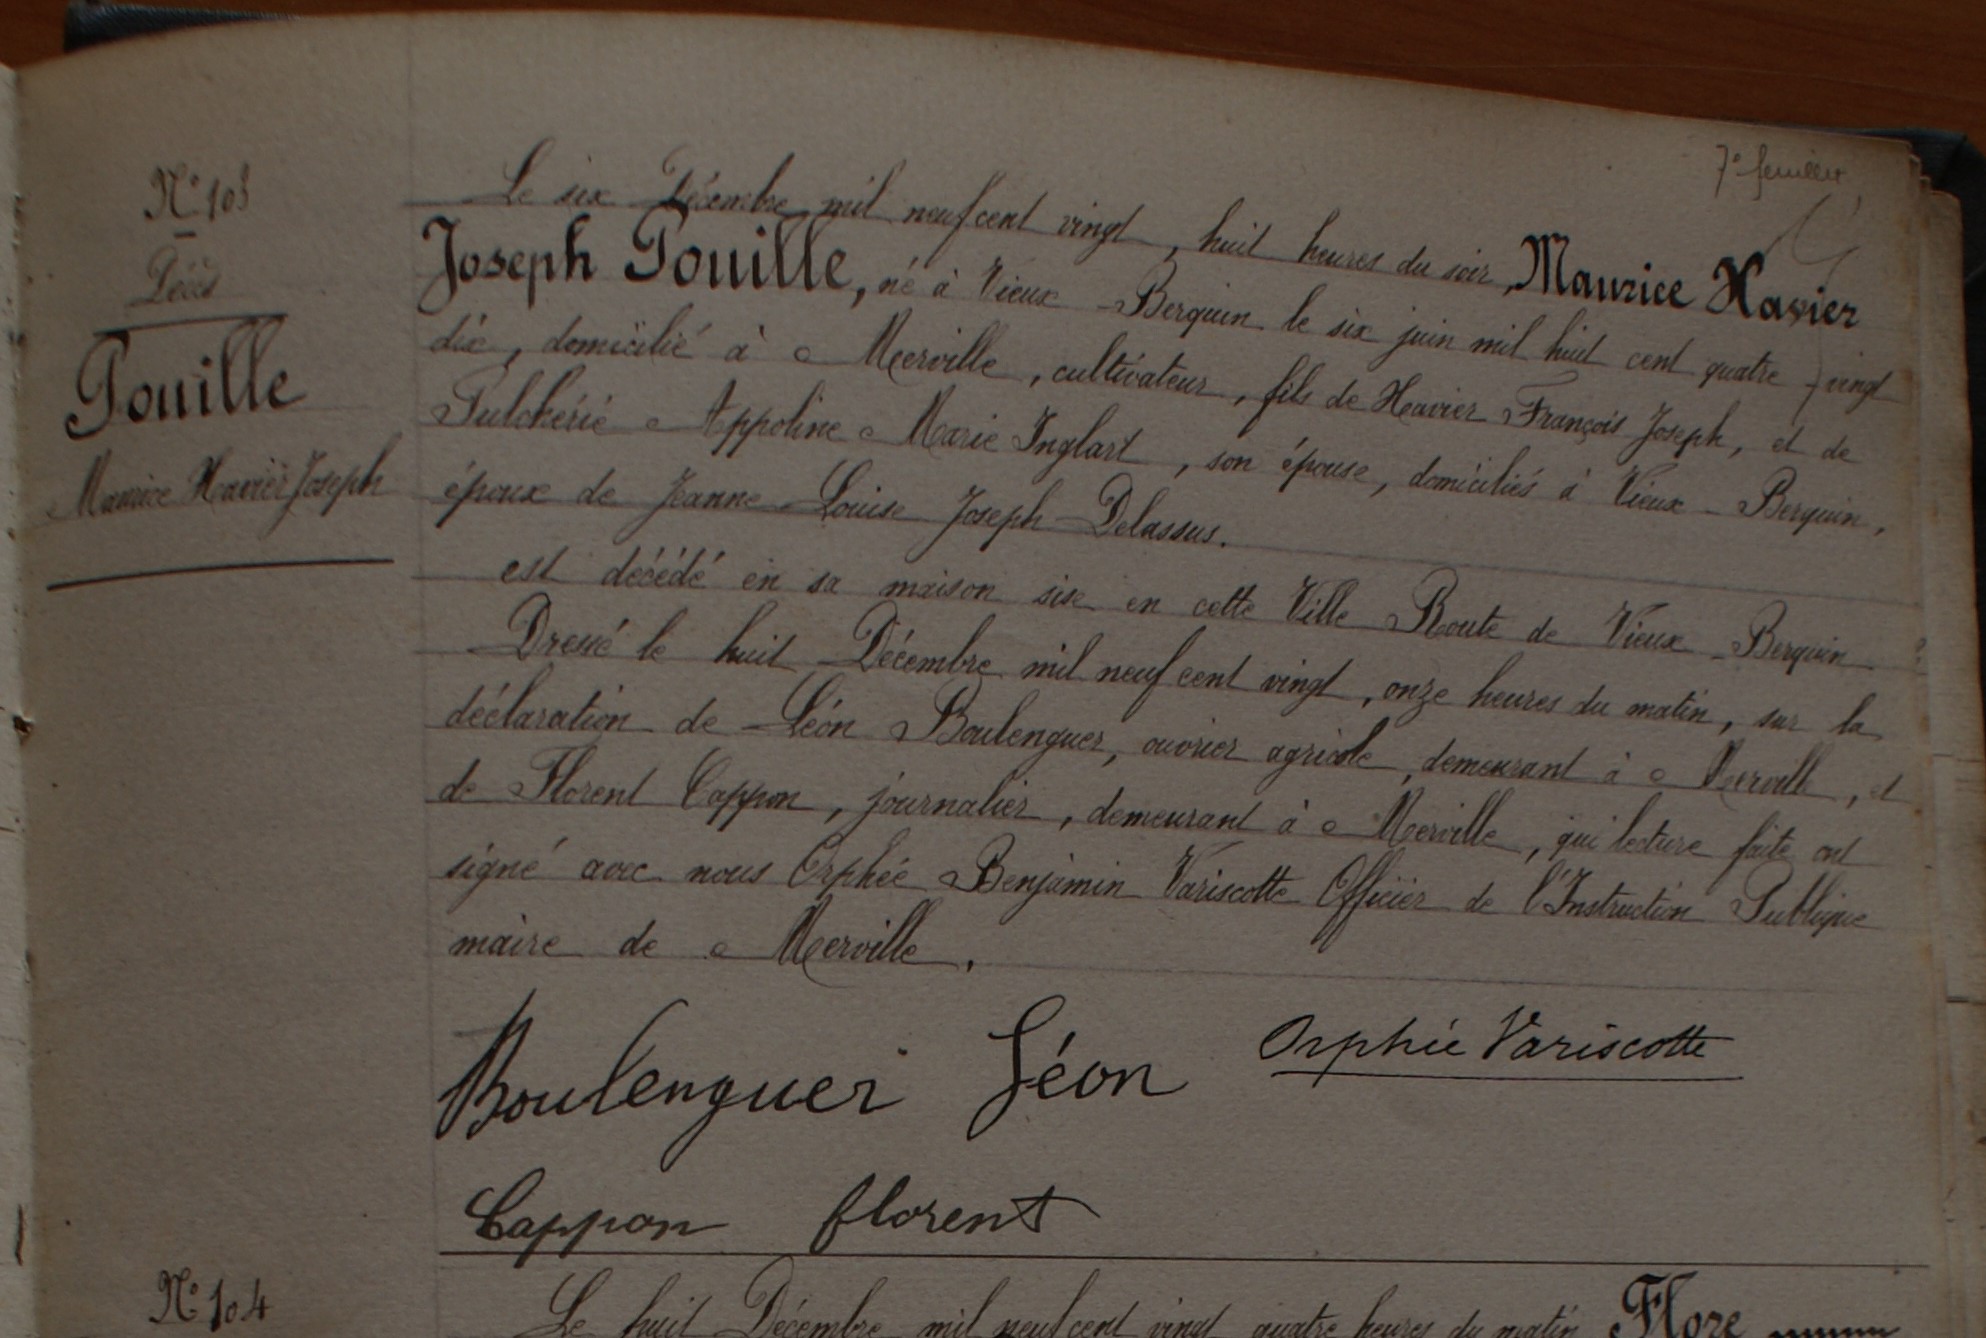 7e feuillet
N° 103
Décès
Pouille
Maurice Xavier Joseph
Le six Décembre mil neuf cent vingt, huit heures du soir, Maurice Xavier
Joseph Pouille, né à Vieux-Berquin le six juin mil huit cent quatre-vingt
dix, domicilié à Merville, cultivateur, fils de Xavier François Joseph, et de
Pulchérie Appoline Marie Inglart, son épouse, domiciliés à Vieux-Berquin,
époux de Jeanne Louise Joseph Delassus.
est décédé en sa maison sise en cette Ville Route de Vieux-Berquin
Dressé le huit Décembre mil neuf cent vingt, onze heures du matin, sur la
déclaration de Léon Boulenguer, ouvrier agricole, demeurant à Merville, et
de Florent Cappon, journalier, demeurant à Merville, qui lecture faite ont
signé avec nous Orphée Benjamin Variscotte Officier de l'Instruction Publique
maire de Merville.
Boulenguer Léon Orphée Variscotte
Cappon florent
N° 104
Le huit Décembre mil neuf cent vingt quatre heures du matin Flore